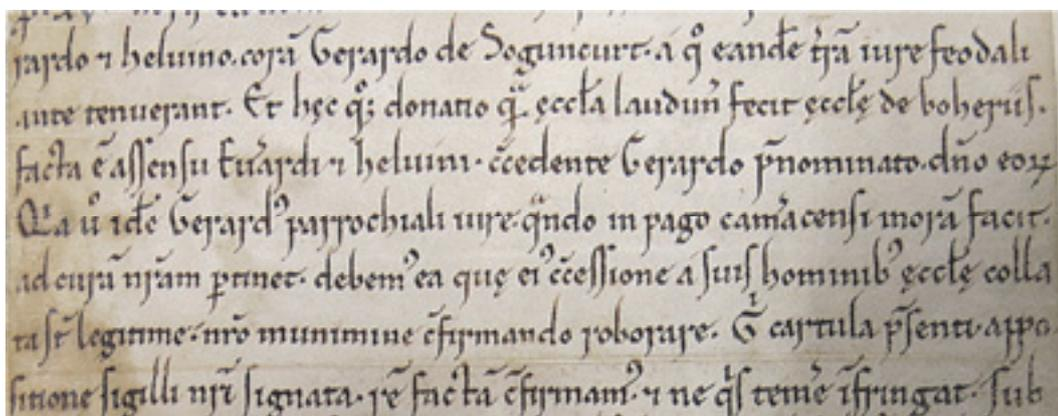 rardo ⁊ heluino. corā Gerardo de Soguncurt. a q̊ eandē t̄rā iure feodali
ante tenuerant. Et hęc q̊; donatio qͣ̄ ęccl̄a laudun̄ fecit ęccl̄ę de boheriis.
facta ē assensu Euv̄ardi ⁊ heluini. c̄cedente Gerardo p̄nominato. dn̄o eoꝝ
Qͥa ů idē Gerard᷒ parrochiali iure. qͣndo in pago cam̄acensi morā facit.
ad curā nr̄am ꝑtinet. debem᷒ ea quę ei᷒ c̄cessione a suis hominib᷒ ęccl̄ę colla
ta st̄ legitime. nr̄o munimine c̄firmando roborare. Gͥ cartula p̄senti. appo
sitione sigilli nr̄i signata. rē factā c̄firmam᷒. ⁊ ne qͥs tem̄e īfringat. sub